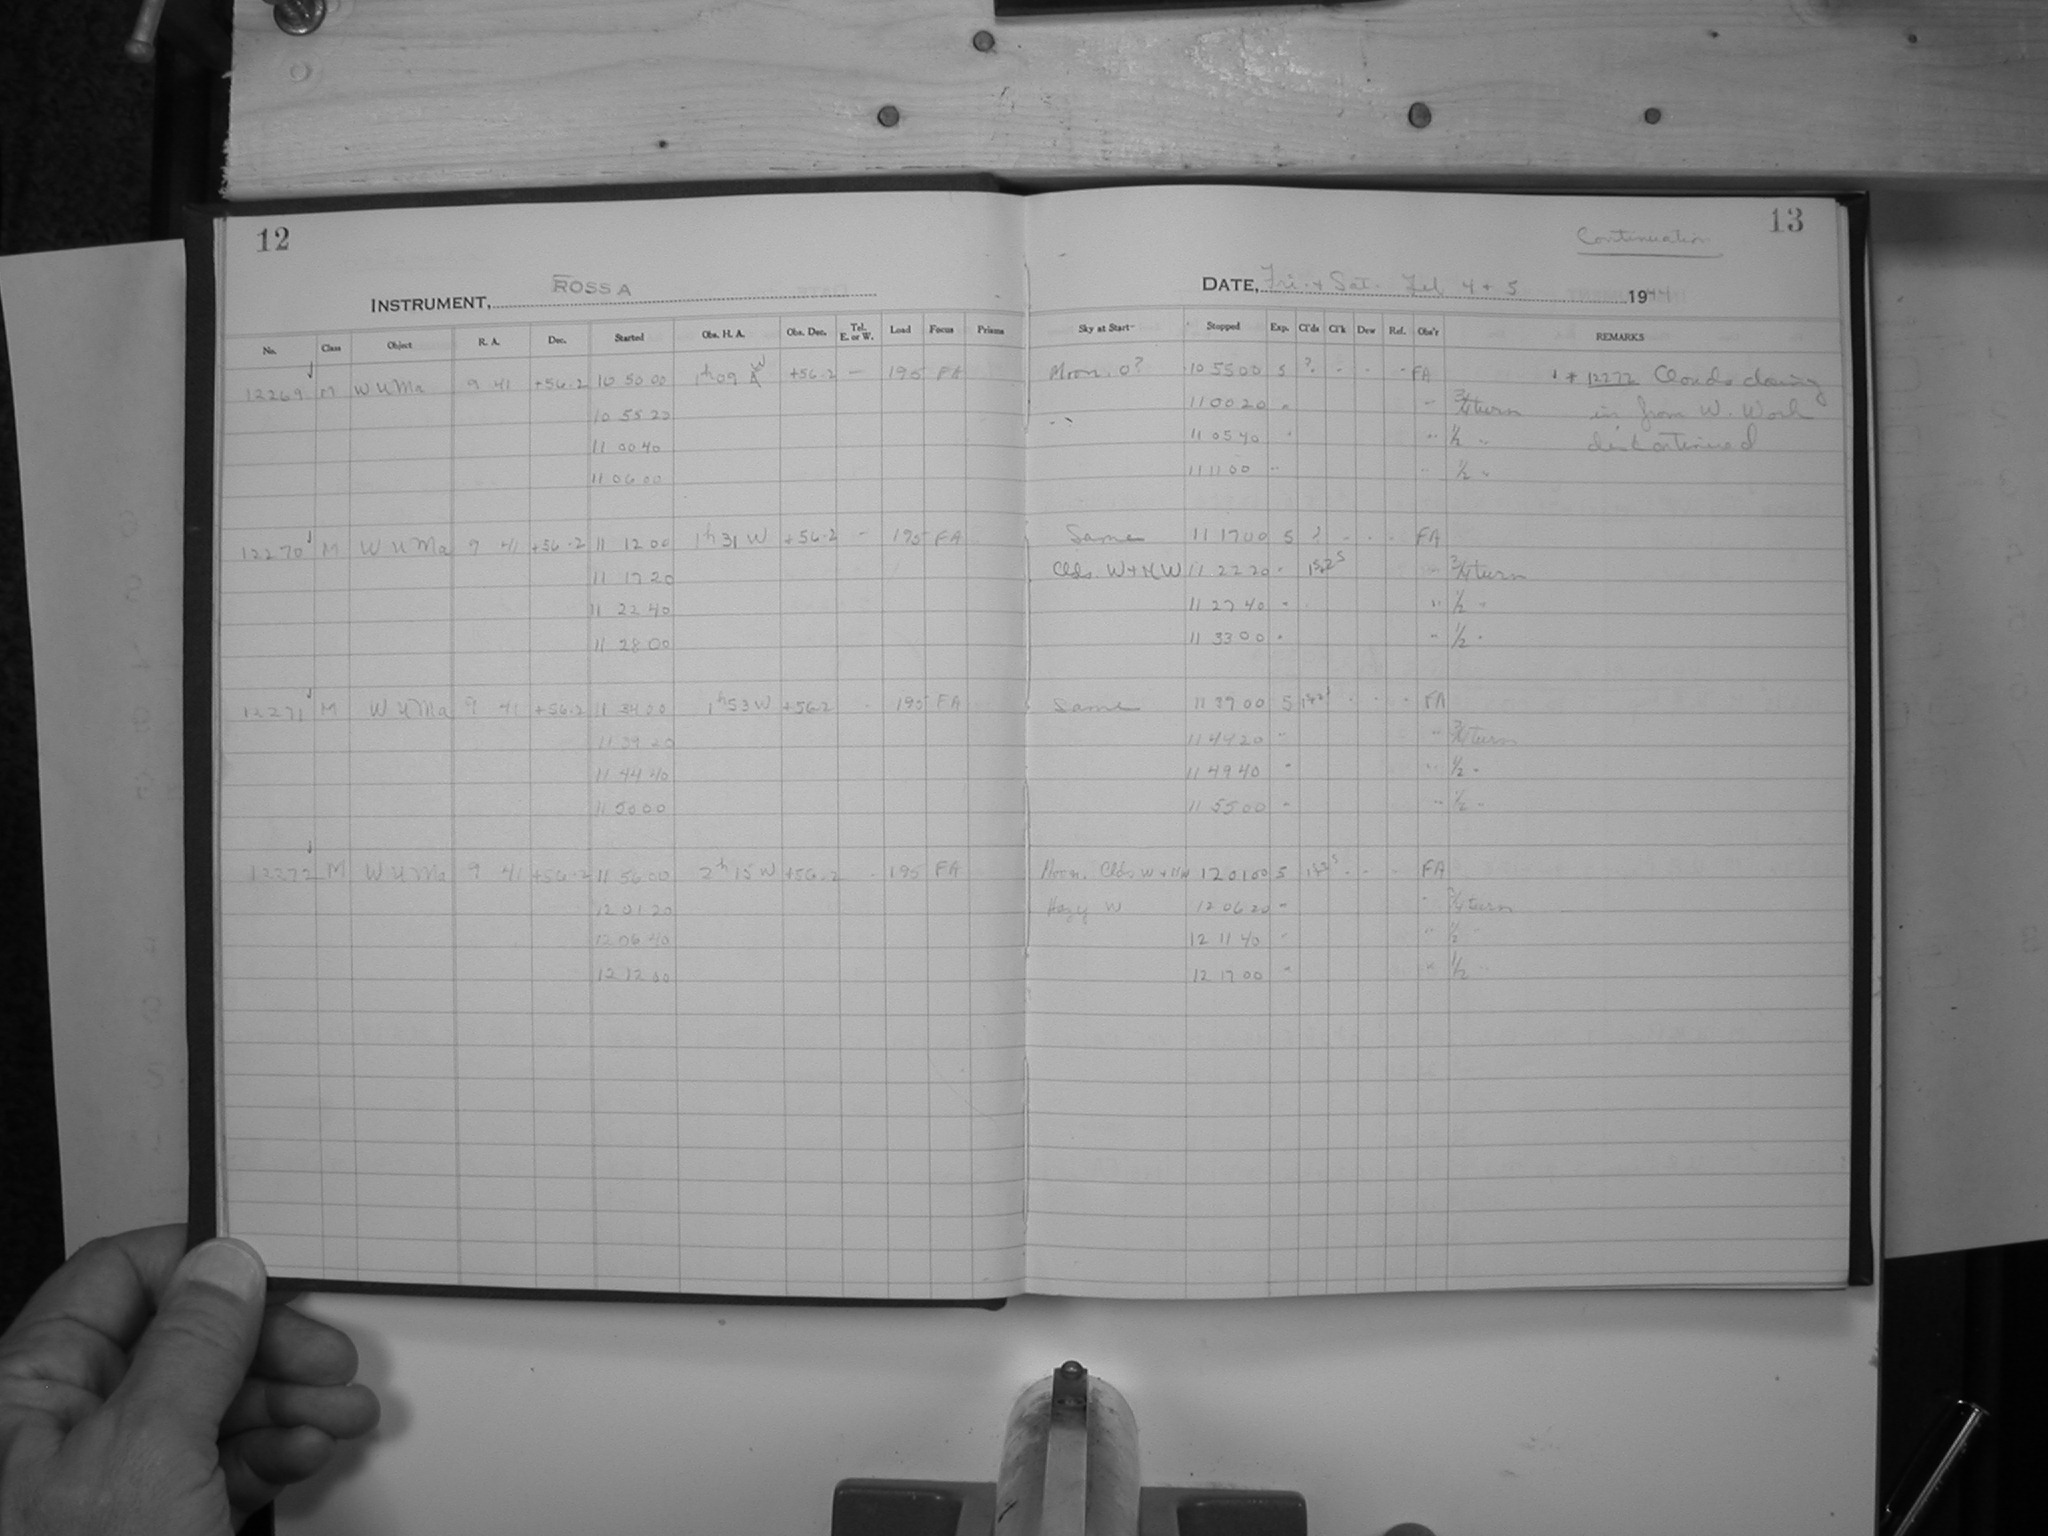 12
13
Continuation
INSTRUMENT, ROSS A
DATE, Fri. + Sat. Feb 4 + 5 1944
No. Class Object R. A. Dec. Started Obs. H. A. Obs. Dec. Tel. E. or W. Load Focus Prisms Sky at Start Stopped Exp. Cl'ds Cl'k Dew Ref. Obs'r REMARKS
12269 M W U Ma 9 41 +56.2 10 50 00 1h 09 W +56.2 — 195 FA Moon. 0? 10 55 00 5 ? - - - FA ↓ + 12272 Clouds closing
10 55 20 11 00 20 " " 3/4 turn in from W. Work
11 00 40 11 05 40 " " 1/2 " discontinued
11 06 00 11 11 00 " " 1/2 "
12270 M W U Ma 9 41 +56.2 11 12 00 1h 31 W +56.2 - 195 FA Same 11 17 00 5 ? - - - FA
11 17 20 Clds. W + NW 11 22 20 " " 3/4 turn
11 22 40 11 27 40 " " 1/2 "
11 28 00 11 33 00 " " 1/2 "
12271 M W U Ma 9 41 +56.2 11 34 00 1h 53 W +56.2 - 195 FA Same 11 39 00 5 - - - FA
11 39 20 11 44 20 " " 3/4 turn
11 44 40 11 49 40 " " 1/2 "
11 50 00 11 55 00 " " 1/2 "
12272 M W U Ma 9 41 +56.2 11 56 00 2h 15 W +56.2 - 195 FA Moon. Clds W + NW 12 01 00 5 - - - FA
12 01 20 Hazy W 12 06 20 " " 3/4 turn
12 06 40 12 11 40 " " 1/2 "
12 12 00 12 17 00 " " 1/2 "